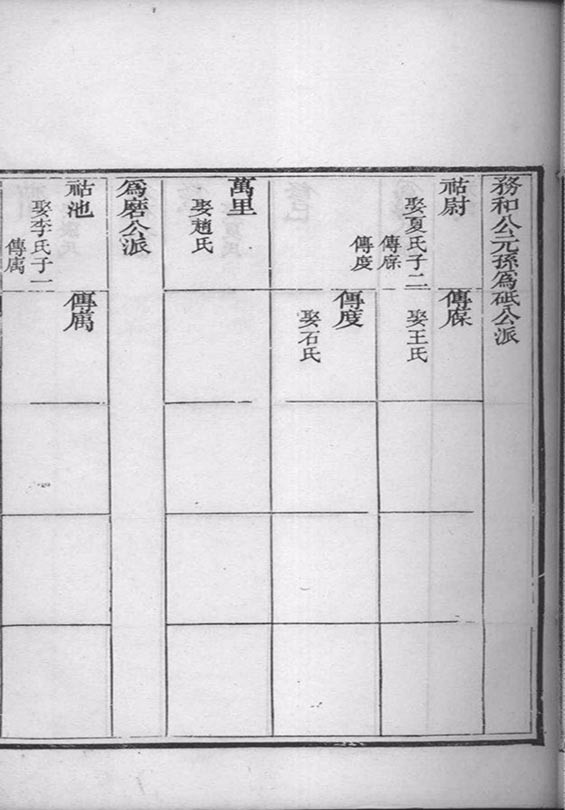 務和公元孫為砥公派
祜尉
娶夏氏子二
傳庥
傳度
傳庥
娶王氏
傳度
娶石氏
萬里
娶趙氏
為磨公派
祜池
娶李氏子一
傳厲
傳厲